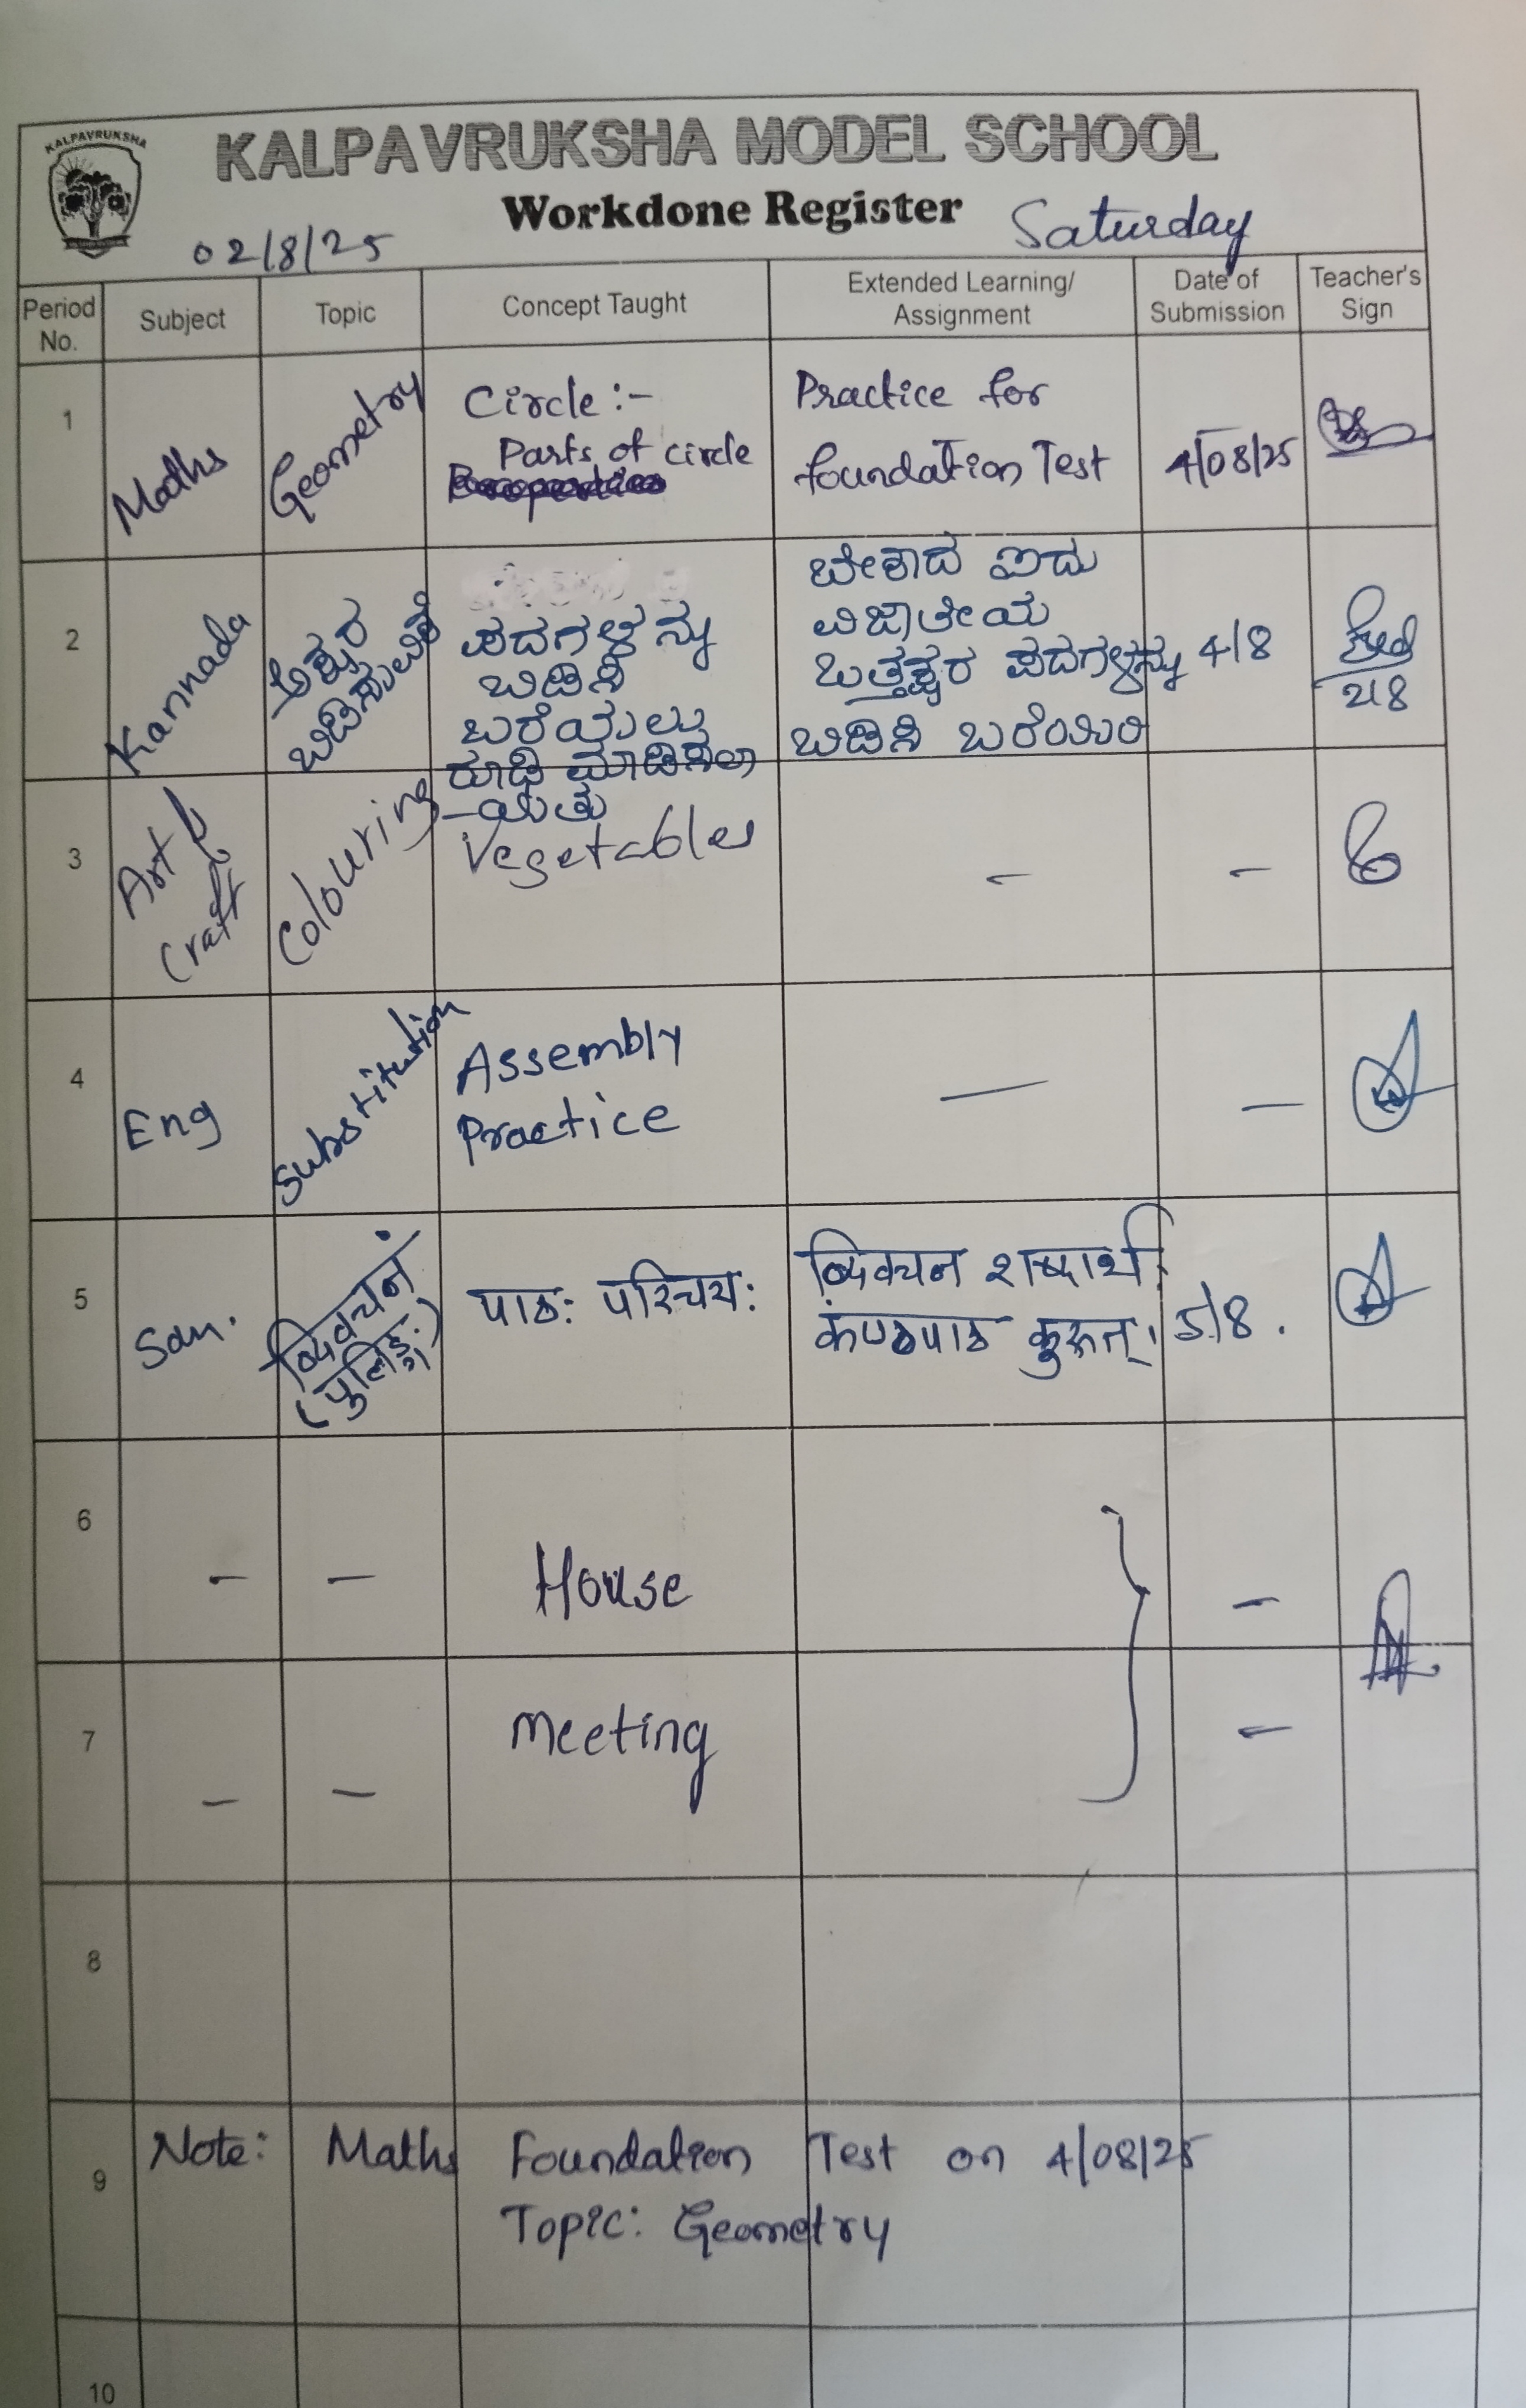 KALPAVRUKSHA
KALPAVRUKSHA MODEL SCHOOL
Workdone Register
Saturday
02/8/25
Period No.
Subject
Topic
Concept Taught
Extended Learning/
Assignment
Date of
Submission
Teacher's
Sign
1
Maths
Geometry
Circle :-
Parts of circle
Practice for
foundation Test
4/08/25
2
Kannada
ಅಕ್ಷರ
ಬಿಡಿಸುವಿಕೆ
ಪದಗಳನ್ನು
ಬಿಡಿಸಿ
ಬರೆಯಲು
ರೂಢಿ ಮಾಡಿಸಲಾ
-ಯಿತು
ಬೇಕಾದ ಐದು
ವಿಜಾತೀಯ
ಒತ್ತಕ್ಷರ ಪದಗಳನ್ನು
ಬಿಡಿಸಿ ಬರೆಯಿರಿ
4/8
2/8
3
Art &
Craft
Colouring
Vegetables
-
-
4
Eng
Substitution
Assembly
Practice
-
-
5
San.
द्विवचनं
(पुलिङ्गः)
पाठः परिचयः
द्विवचन शब्दार्थ
कंण्ठपाठ कुरूत्।
5/8.
6
-
-
House
-
7
-
-
Meeting
-
8
9
Note: Maths Foundation Test on 4/08/25
Topic: Geometry
10